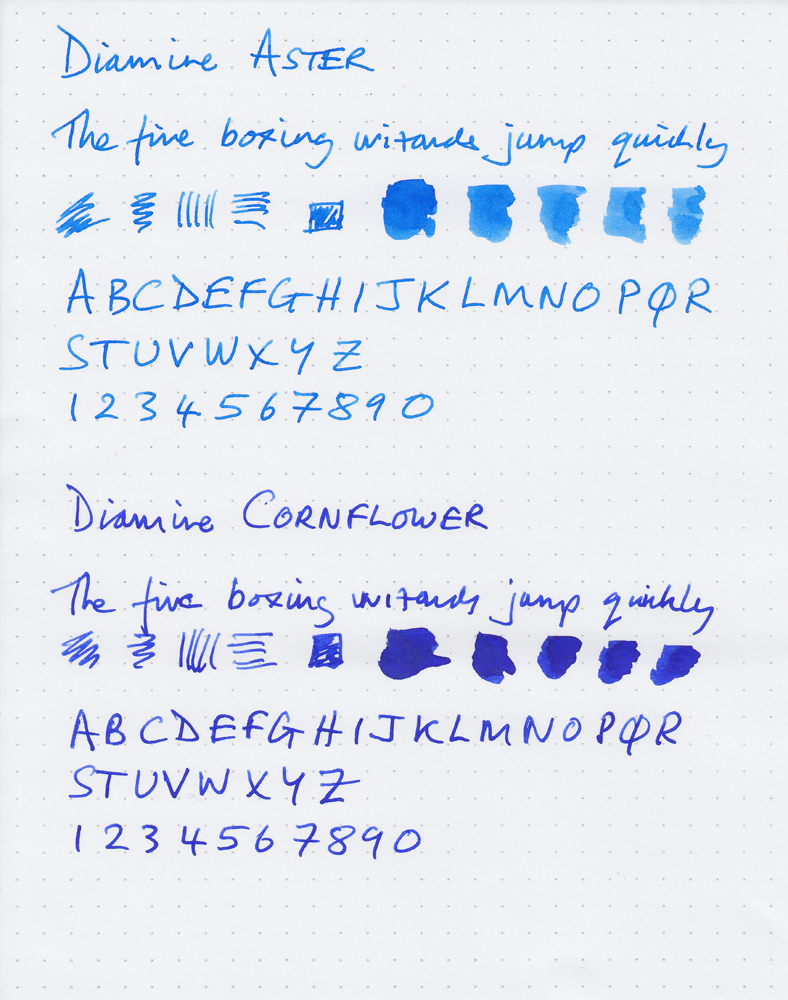 Diamine ASTER
The five boxing wizards jump quickly
A B C D E F G H I J K L M N O P Q R
S T U V W X Y Z
1 2 3 4 5 6 7 8 9 0
Diamine CORNFLOWER
The five boxing wizards jump quickly
A B C D E F G H I J K L M N O P Q R
S T U V W X Y Z
1 2 3 4 5 6 7 8 9 0